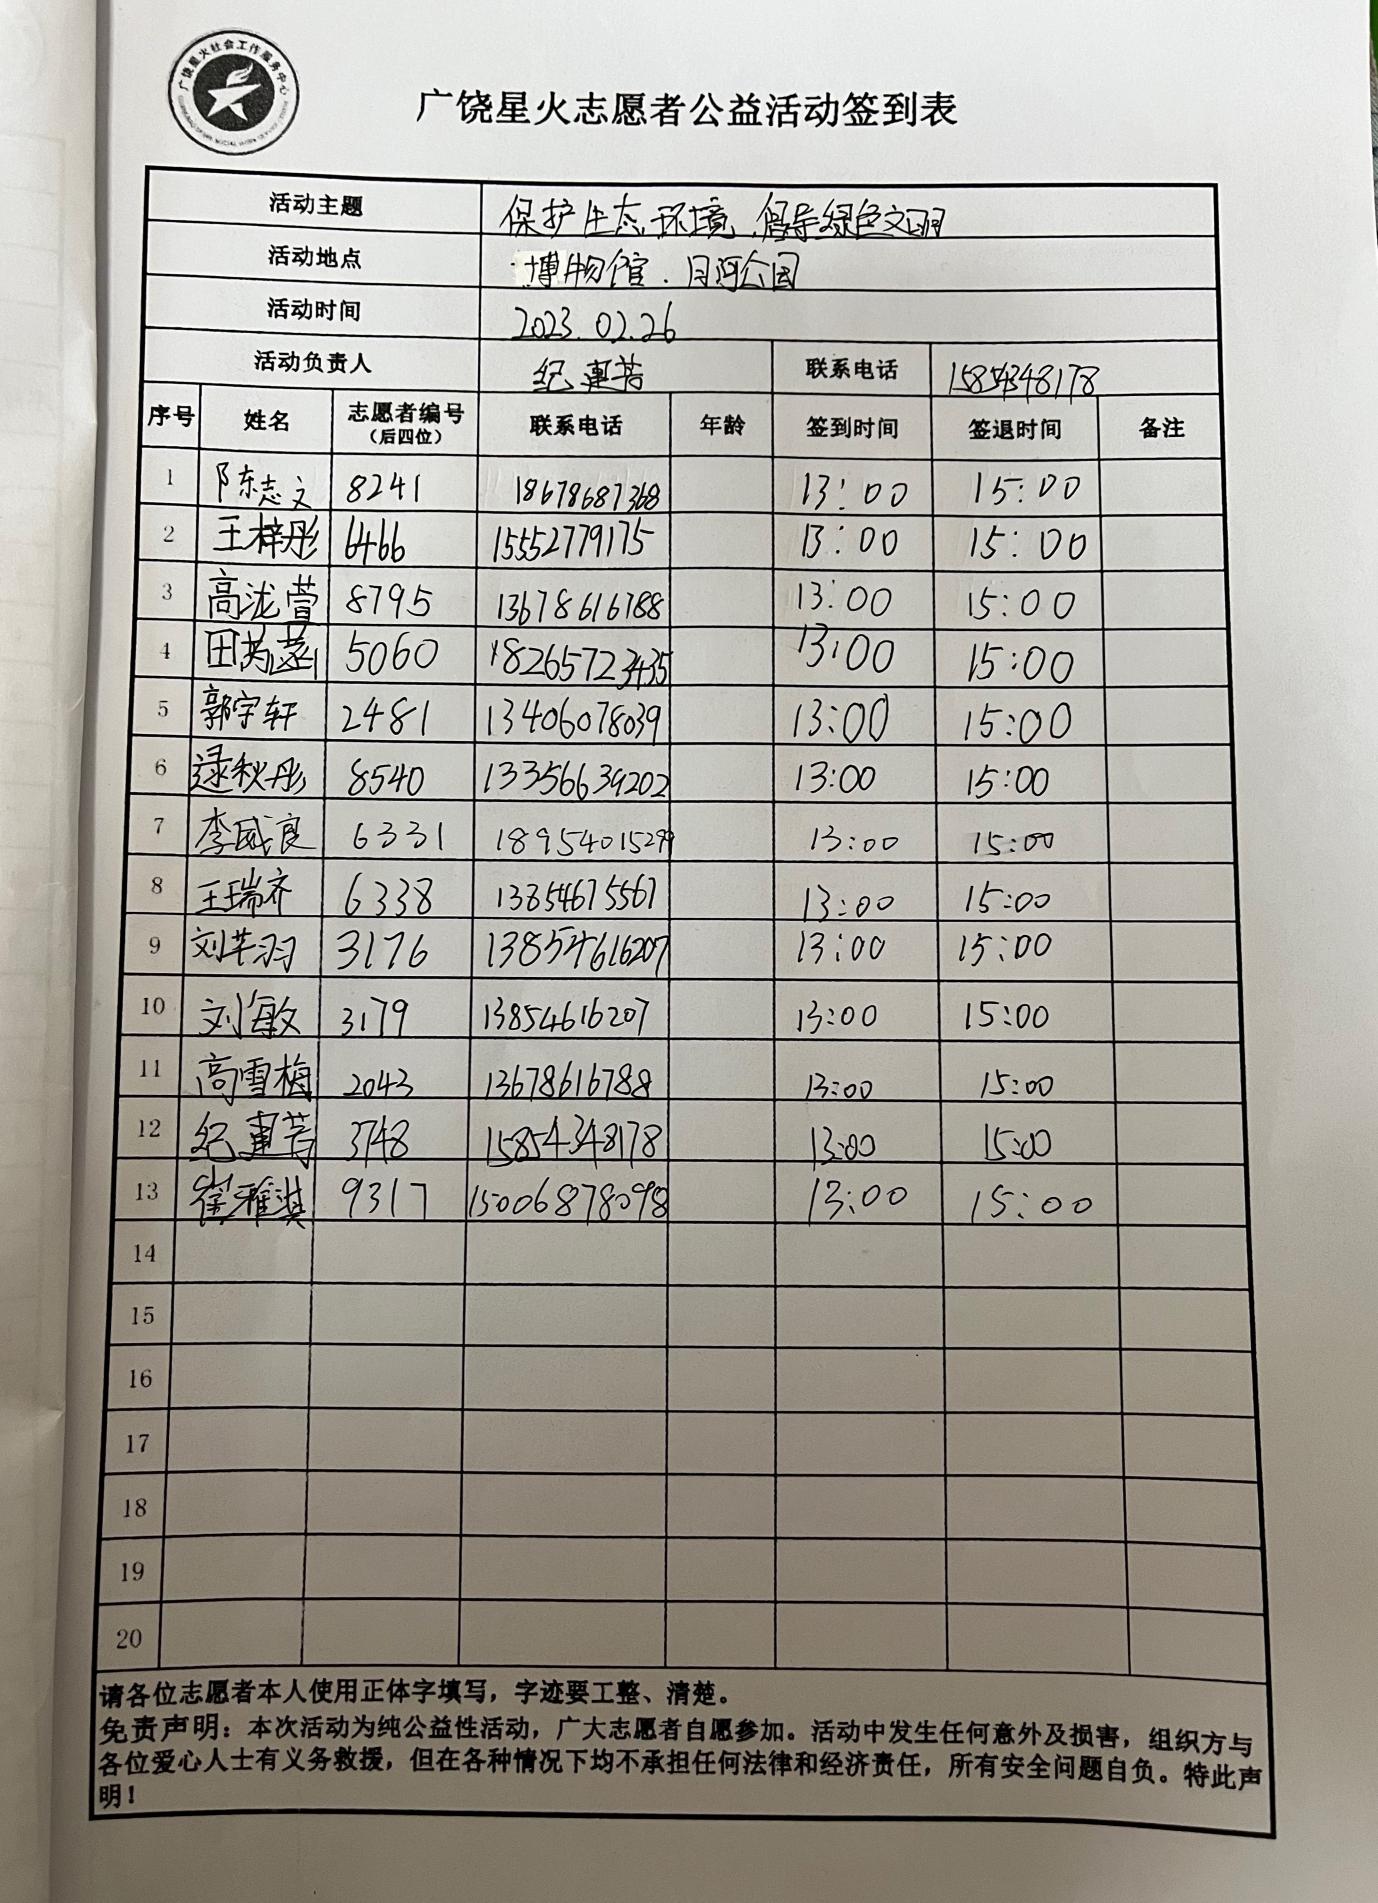 广饶星火社会工作服务中心
广饶星火志愿者公益活动签到表
活动主题 保护生态环境、倡导绿色文明
活动地点 博物馆、月河公园
活动时间 2023.02.26
活动负责人 纪惠芳 联系电话 15854348178
序号 姓名 志愿者编号（后四位） 联系电话 年龄 签到时间 签退时间 备注
1 陈志文 8241 18678687368 13:00 15:00
2 王梓彤 6466 15552779175 13:00 15:00
3 高泷萱 8795 13678616788 13:00 15:00
4 田 5060 18265723435 13:00 15:00
5 郭宇轩 2481 13406078039 13:00 15:00
6 逯秋彤 8540 13356639202 13:00 15:00
7 李威良 6331 18954015299 13:00 15:00
8 王瑞齐 6338 13854675567 13:00 15:00
9 刘芊羽 3176 13854616207 13:00 15:00
10 刘海敏 3179 13854616207 13:00 15:00
11 高雪梅 2043 13678616788 13:00 15:00
12 纪惠芳 3748 15854348178 13:00 15:00
13 崔雅淇 9317 15006878098 13:00 15:00
14
15
16
17
18
19
20
请各位志愿者本人使用正体字填写，字迹要工整、清楚。
免责声明：本次活动为纯公益性活动，广大志愿者自愿参加。活动中发生任何意外及损害，组织方与
各位爱心人士有义务救援，但在各种情况下均不承担任何法律和经济责任，所有安全问题自负。特此声
明！